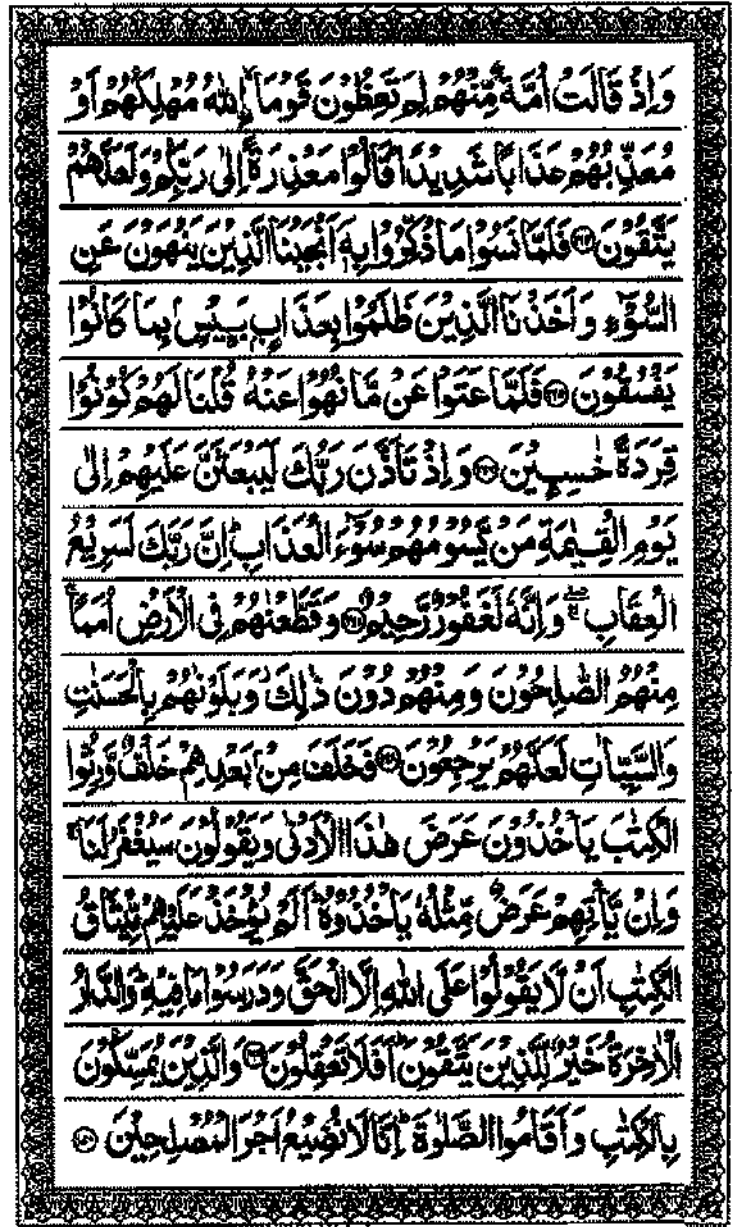 وَاِذْ قَالَتْ اُمَّةٌ مِّنْهُمْ لِمَ تَعِظُوْنَ قَوْمَا ۙ اِللّٰهُ مُهْلِكُهُمْ اَوْ
مُعَذِّبُهُمْ عَذَابًا شَدِيْدًا ؕ قَالُوْا مَعْذِرَةً اِلٰى رَبِّكُمْ وَلَعَلَّهُمْ
يَتَّقُوْنَ ﴿۱۶۴﴾ فَلَمَّا نَسُوْا مَا ذُكِّرُوْا بِهٖۤ اَنْجَيْنَا الَّذِيْنَ يَنْهَوْنَ عَنِ
السُّوْٓءِ وَاَخَذْنَا الَّذِيْنَ ظَلَمُوْا بِعَذَابٍۭ بَـِٔيْسٍۭ بِمَا كَانُوْا
يَفْسُقُوْنَ ﴿۱۶۵﴾ فَلَمَّا عَتَوْا عَنْ مَّا نُهُوْا عَنْهُ قُلْنَا لَهُمْ كُوْنُوْا
قِرَدَةً خٰسِـِٕيْنَ ﴿۱۶۶﴾ وَاِذْ تَاَذَّنَ رَبُّكَ لَيَبْعَثَنَّ عَلَيْهِمْ اِلٰى
يَوْمِ الْقِيٰمَةِ مَنْ يَّسُوْمُهُمْ سُوْٓءَ الْعَذَابِ ؕ اِنَّ رَبَّكَ لَسَرِيْعُ
الْعِقَابِ ۖۚ وَاِنَّهٗ لَغَفُوْرٌ رَّحِيْمٌ ﴿۱۶۷﴾ وَقَطَّعْنٰهُمْ فِى الْاَرْضِ اُمَمًا ۚ
مِنْهُمُ الصّٰلِحُوْنَ وَمِنْهُمْ دُوْنَ ذٰلِكَ ؗ وَبَلَوْنٰهُمْ بِالْحَسَنٰتِ
وَالسَّيِّاٰتِ لَعَلَّهُمْ يَرْجِعُوْنَ ﴿۱۶۸﴾ فَخَلَفَ مِنْۢ بَعْدِهِمْ خَلْفٌ وَّرِثُوا
الْكِتٰبَ يَاْخُذُوْنَ عَرَضَ هٰذَا الْاَدْنٰى وَيَقُوْلُوْنَ سَيُغْفَرُ لَنَا ۚ
وَاِنْ يَّاْتِهِمْ عَرَضٌ مِّثْلُهٗ يَاْخُذُوْهُ ؕ اَلَمْ يُؤْخَذْ عَلَيْهِمْ مِّيْثَاقُ
الْكِتٰبِ اَنْ لَّا يَقُوْلُوْا عَلَى اللّٰهِ اِلَّا الْحَقَّ وَدَرَسُوْا مَا فِيْهِ ؕ وَالدَّارُ
الْاٰخِرَةُ خَيْرٌ لِّلَّذِيْنَ يَتَّقُوْنَ ؕ اَفَلَا تَعْقِلُوْنَ ﴿۱۶۹﴾ وَالَّذِيْنَ يُمَسِّكُوْنَ
بِالْكِتٰبِ وَاَقَامُوا الصَّلٰوةَ ؕ اِنَّا لَا نُضِيْعُ اَجْرَ الْمُصْلِحِيْنَ ﴿۱۷۰﴾